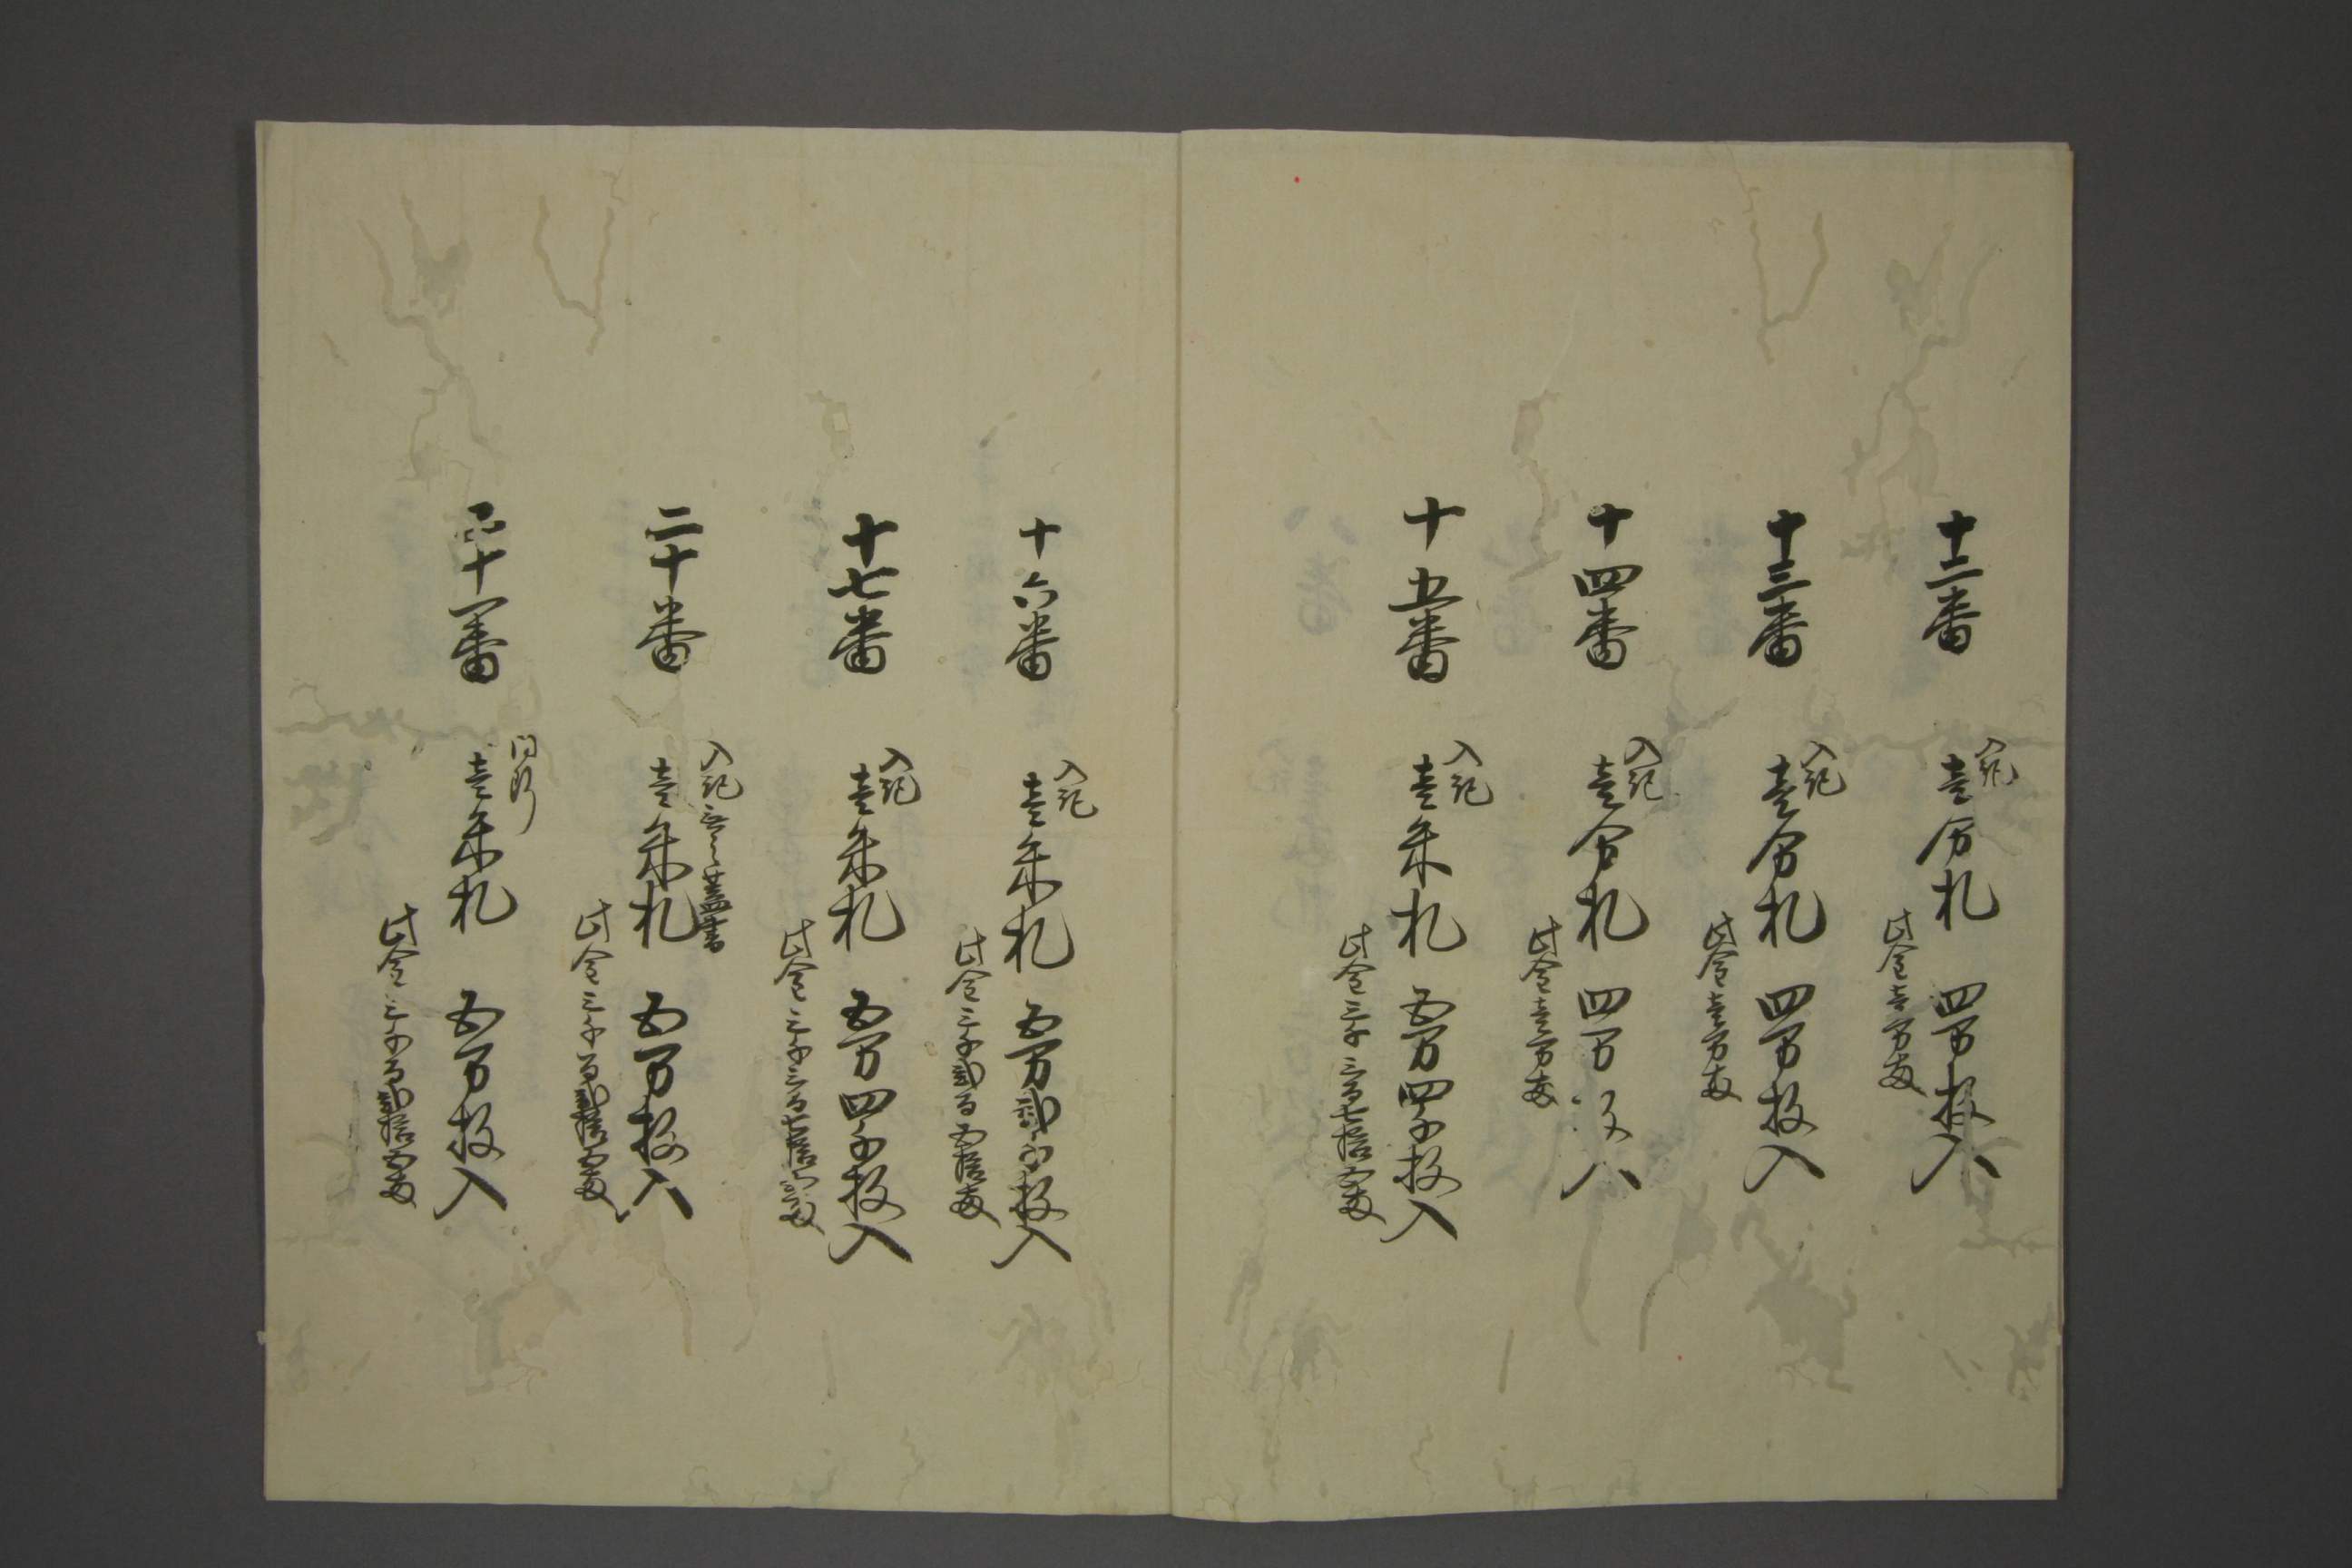 十二番
入記
壱分札 四万枚入
此金壱万両
十三番
入記
壱分札 四万枚入
此金壱万両
十四番
入記
壱分札 四万枚入
此金壱万両
十五番
入記
壱朱札 五万四千枚入
此金三千三百七拾五両
十六番
入記
壱朱札 五万弐千枚入
此金三千弐百五拾両
十七番
入記
壱朱札 五万四千枚入
此金三千三百七拾五両
二十番
入記無之蓋書
壱朱札 五万枚入
此金三千百弐拾五両
二十一番
同断
壱朱札 五万枚入
此金三千百弐拾五両